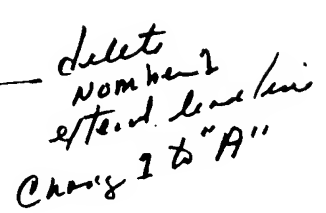 delete
Number 1
extend lead line
Change 1 to "A"